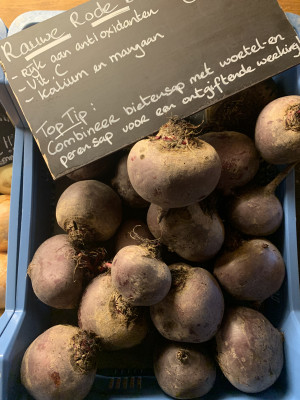 Rauwe Rode
- Rijk aan antioxidanten
- Vit. C
- Kalium en mangaan
Top Tip:
Combineer bietensap met wortel-en
perensap voor een ontgiftende weekling